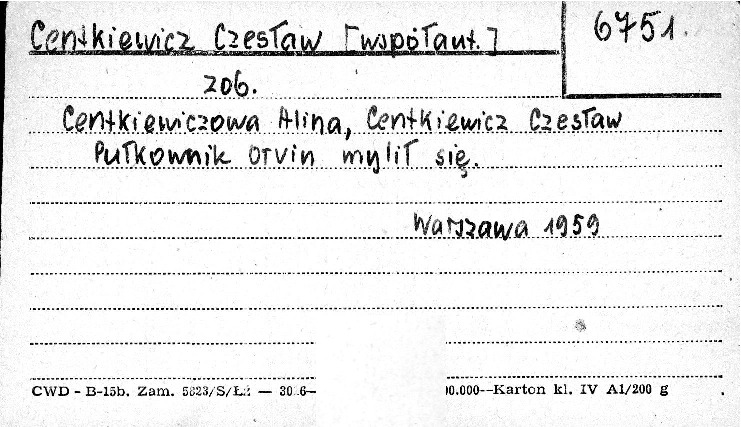 Centkiewicz Czesław [współaut.]
6751.
zob.
Centkiewiczowa Alina, Centkiewicz Czesław
Pułkownik Orvin mylił się.
Warszawa 1959
CWD - B-15b. Zam. 5823/S/Łż — 30 6—
00.000--Karton kl. IV A1/200 g